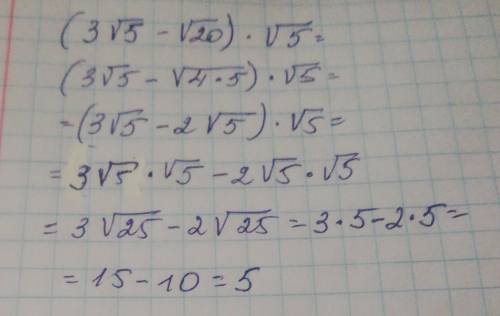 (3√5 - √20) · √5 =
(3√5 - √4·5) · √5 =
= (3√5 - 2√5) · √5 =
= 3√5 · √5 - 2√5 · √5
= 3√25 - 2√25 = 3·5 - 2·5 =
= 15 - 10 = 5